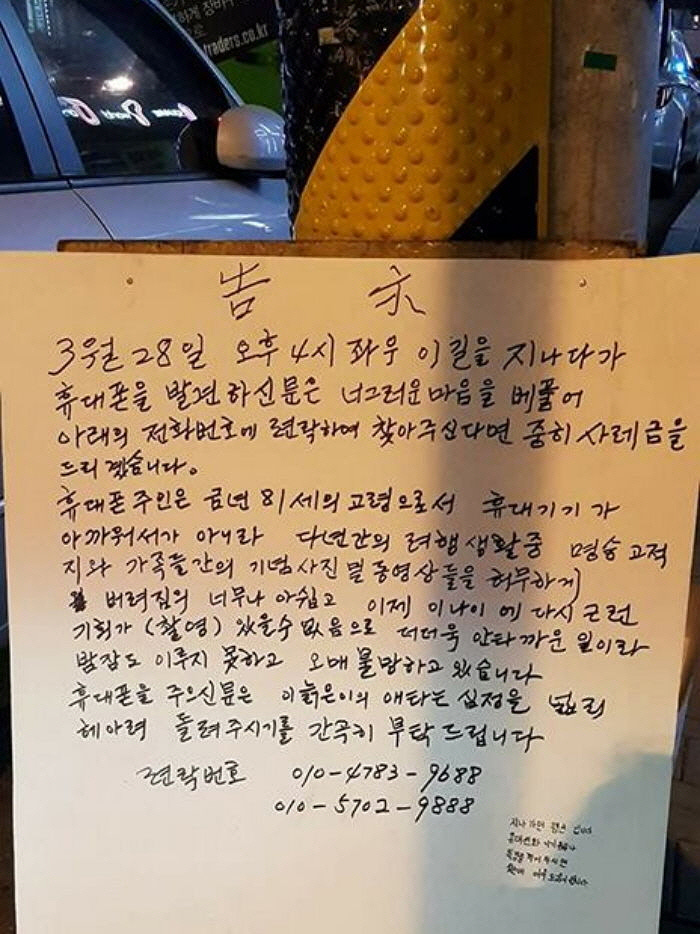 하게 장바
traders.co.kr
告 示
3월 28일 오후 4시 좌우 이길을 지나다가
휴대폰을 발견하신분은 너그러운 마음을 베풀어
아래의 전화번호에 련락하여 찾아주신다면 중히 사례금을
드리겠습니다.
휴대폰 주인은 금년 81세의 고령으로서 휴대기기가
아까워서가 아니라 다년간의 려행생활중 명승고적
지와 가족들간의 기념사진 및 동영상들을 허무하게
버려짐의 너무나 아쉽고 이제 이나이에 다시 근런
기회가 (촬영) 있을수 없음으로 더더욱 안타까운 일이라
밤잠도 이루지 못하고 오매불망하고 있습니다
휴대폰을 주으신분은 이늙은이의 애타는 심정을 널리
헤아려 돌려주시기를 간곡히 부탁드립니다
련락번호 010-4783-9688
010-5702-9888
지나가던